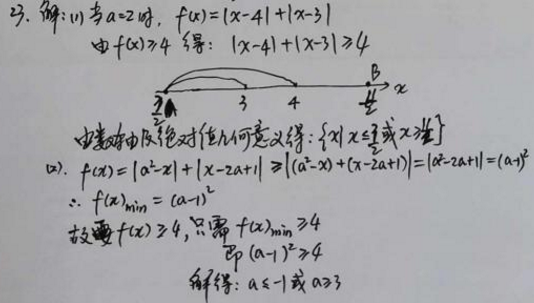 23. 解:(1)当a=2时, f(x)=|x-4|+|x-3|
由f(x)≥4 得: |x-4|+|x-3|≥4
A B
3/2 3 4 11/2 x
由数轴及绝对值几何意义得:{x|x≤3/2或x≥11/2}
(2). f(x)=|a²-x|+|x-2a+1|≥|(a²-x)+(x-2a+1)|=|a²-2a+1|=(a-1)²
∴ f(x)min=(a-1)²
故要f(x)≥4,只需f(x)min≥4
即(a-1)²≥4
解得: a≤-1或a≥3